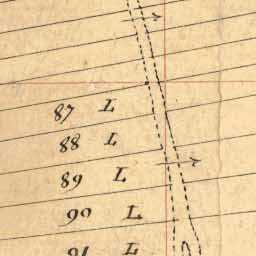 87 L
88 L
89 L
90 L
91 L